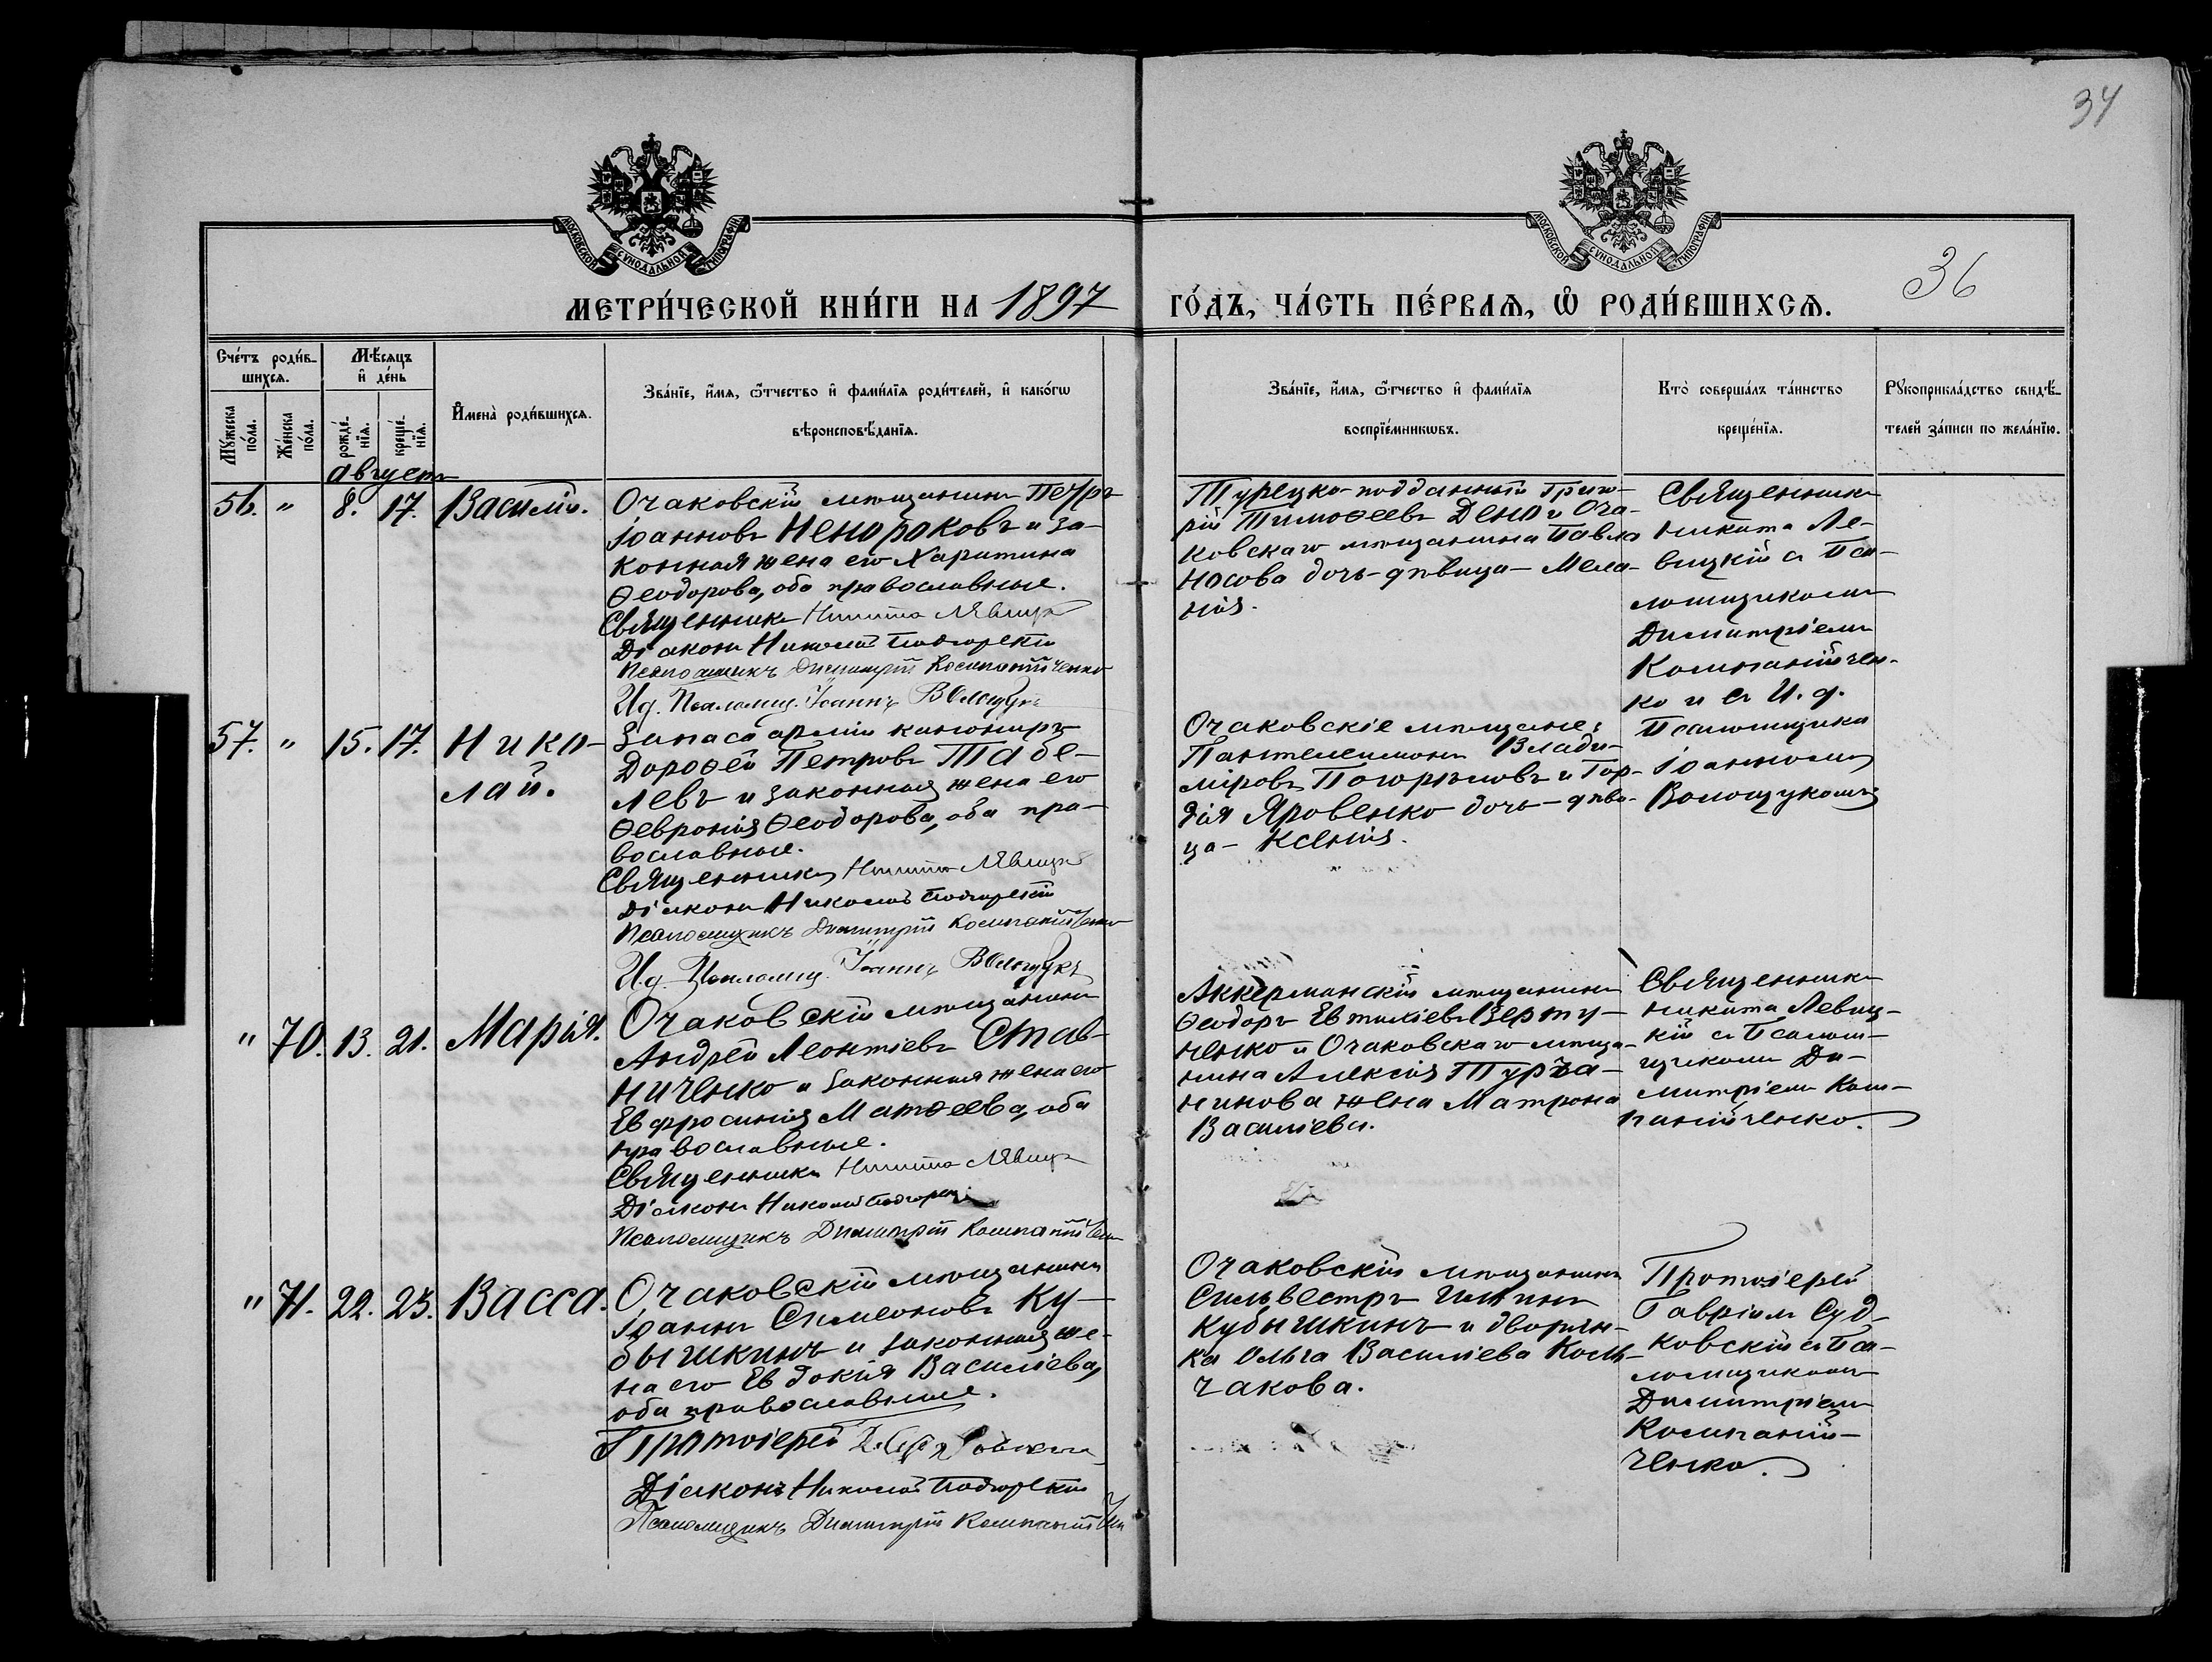 34
36
МОСКОВСКОЙ СѴНОДАЛЬНОЙ ТИПОГРАФІИ
МОСКОВСКОЙ СѴНОДАЛЬНОЙ ТИПОГРАФІИ
МЕТРИ́ЧЕСКОЙ КНИ́ГИ НА 1897 ГО́ДЪ, ЧА́СТЬ ПЕ́РВАѦ, Ѡ҆ РОДИ́ВШИХСѦ.
Сче́тъ роди́в-
шихсѧ.
Мꙋ́жеска по́ла.
Же́нска по́ла.
Мѣ́сѧцъ
и҆ де́нь
рожде́-
нїѧ.
креще́-
нїѧ.
И҆мена̀ роди́вшихсѧ.
Зва́нїе, и҆́мѧ, ѻ҆́тчество и҆ фами́лїѧ роди́телей, и҆ како́гѡ
вѣроисповѣ́данїѧ.
Зва́нїе, и҆́мѧ, ѻ҆́тчество и҆ фами́лїѧ
воспрїе́мникѡвъ.
Кто̀ соверша́лъ та́инство
креще́нїѧ.
Рꙋкоприкла́дство свидѣ́-
телей за́писи по жела́нїю.
августъ
56. " 8. 17. Василій.
Очаковскій мѣщанинъ Петръ
Іоанновъ Ненороковъ и за-
конная жена его Харитина
Ѳеодорова, оба православные.
Священникъ Никита Лѣвицкі
Діаконъ Николай Подгорскій
Псаломщикъ Димитрій Компанійченко
И.д. Псаломщ. Іоаннъ Волощукъ
Турецко-подданный Григо-
рій Тимоѳеевъ Дено и Оча-
ковскаго мѣщанина Павла
Носова дочь-дѣвица-Мела-
нія.
Священникъ
Никита Ле-
вицкій съ Пса-
ломщикомъ
Димитріемъ
Компанійчен-
ко и съ И. д.
Псаломщика
Іоанномъ
Волощукомъ
57. " 15. 17. Нико-
лай.
Запаса арміи канониръ
Дороѳей Петровъ Табе-
левъ и законная жена его
Ѳевронія Ѳеодорова, оба пра-
вославные.
Священникъ Никита Лѣвицкі
Діаконъ Николай Подгорскій
Псаломщикъ Димитрій Компанійченко
И.д. Псаломщ. Іоаннъ Волощукъ
Очаковскіе мѣщане:
Пантелеимонъ Влади-
міровъ Погорѣловъ и Гор-
дія Яровенко дочь-дѣви-
ца-Ксенія.
" 70. 13. 21. Марія.
Очаковскій мѣщанинъ
Андрей Леонтіевъ Став-
ниченко и законная жена его
Евфросинія Матѳеева, оба
православные.
Священникъ Никита Лѣвицкі
Діаконъ Николай Подгорскій
Псаломщикъ Димитрій Компанійчен
Аккерманскій мѣщанинъ
Ѳеодоръ Евтихіевъ Верту-
ненко и Очаковскаго мѣща-
нина Алексія Турча-
нинова жена Матрона
Василіева.
Священникъ
Никита Левиц-
кій съ Псалом-
щикомъ Ди-
митріемъ Ком-
панійченко.
" 71. 22. 23. Васса.
Очаковскій мѣщанинъ
Іоаннъ Симеоновъ Ку-
бышкинъ и законная же-
на его Евдокія Василіева,
оба православные.
Протоіерей Г. Судковскій
Діаконъ Николай Подгорскій
Псаломщикъ Димитрій Компанійчен
Очаковскій мѣщанинъ
Сильвестръ
Кубышкинъ и дворян-
ка Ольга Василіева Коль-
чакова.
Протоіерей
Гавріилъ Суд-
ковскій съ Пса-
ломщикомъ
Димитріемъ
Компаній-
ченко.